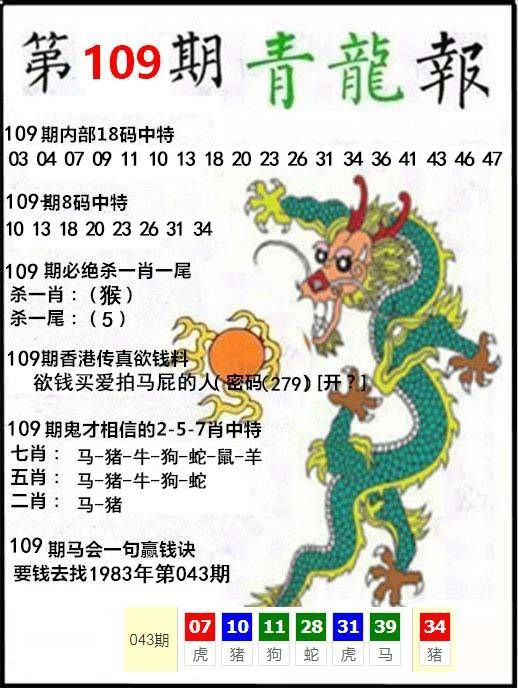 第109期 青龍報
109期内部18码中特
03 04 07 09 11 10 13 18 20 23 26 31 34 36 41 43 46 47
109期8码中特
10 13 18 20 23 26 31 34
109期必绝杀一肖一尾
杀一肖：（猴）
杀一尾：（5）
109期香港传真欲钱料
欲钱买爱拍马屁的人（密码(279）[开？]
109期鬼才相信的2-5-7肖中特
七肖：马-猪-牛-狗-蛇-鼠-羊
五肖：马-猪-牛-狗-蛇
二肖：马-猪
109期马会一句赢钱诀
要钱去找1983年第043期
043期 07 10 11 28 31 39 34
虎 猪 狗 蛇 虎 马 猪